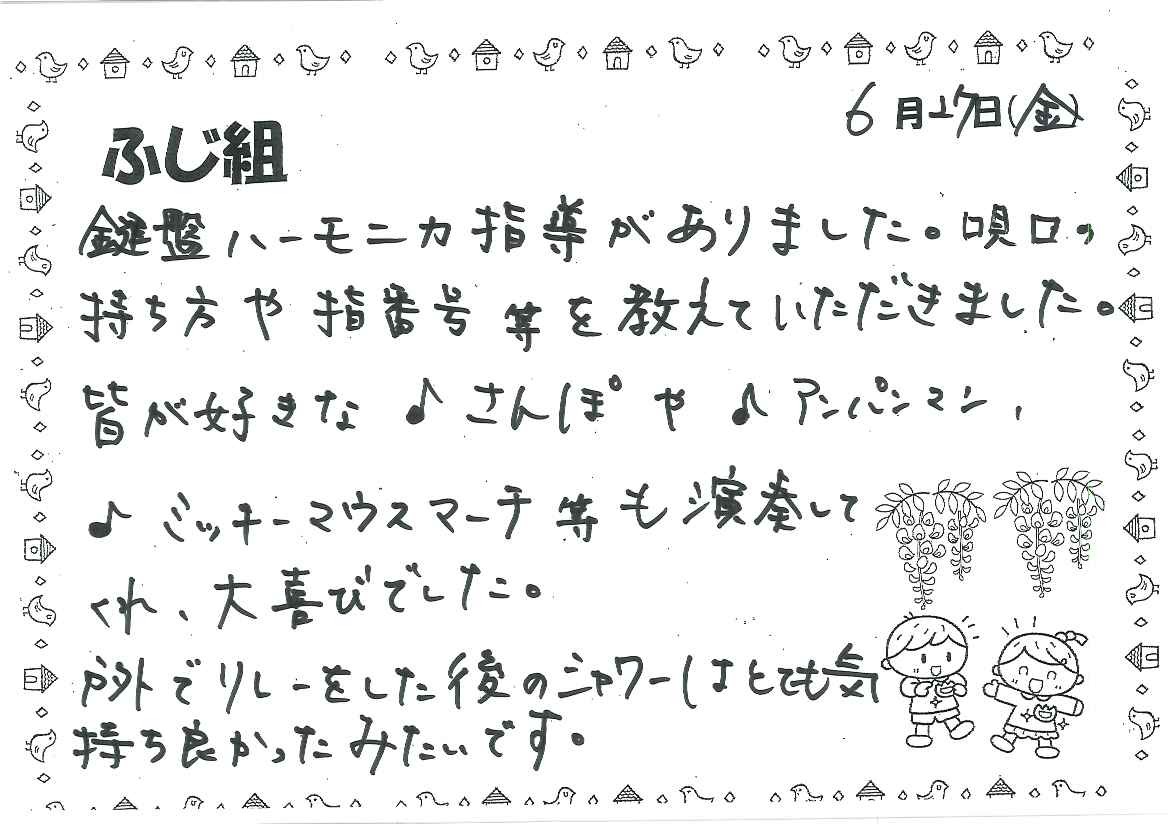 6月17日(金)
ふじ組
鍵盤ハーモニカ指導がありました。唄口の
持ち方や指番号等を教えていただきました。
皆が好きな♪さんぽや♪アンパンマン、
♪ミッキーマウスマーチ等も演奏して
くれ、大喜びでした。
戸外でリレーをした後のシャワーはとても気
持ち良かったみたいです。